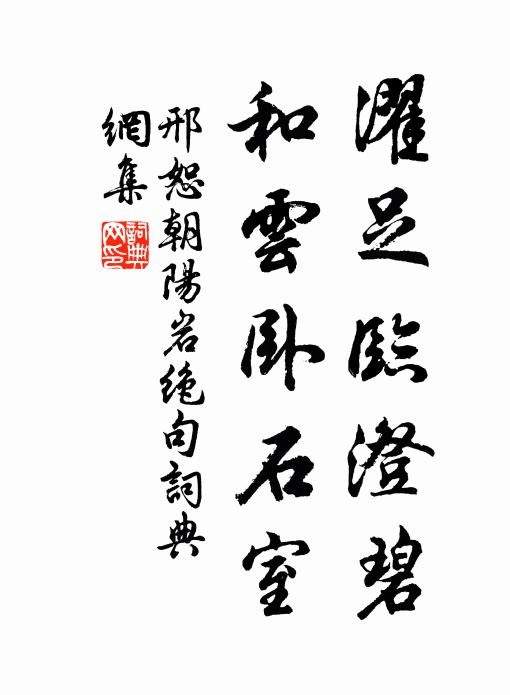 濯足臨澄碧
和雲卧石室
邢恕朝陽岩绝句詞典
網集
詞典网印